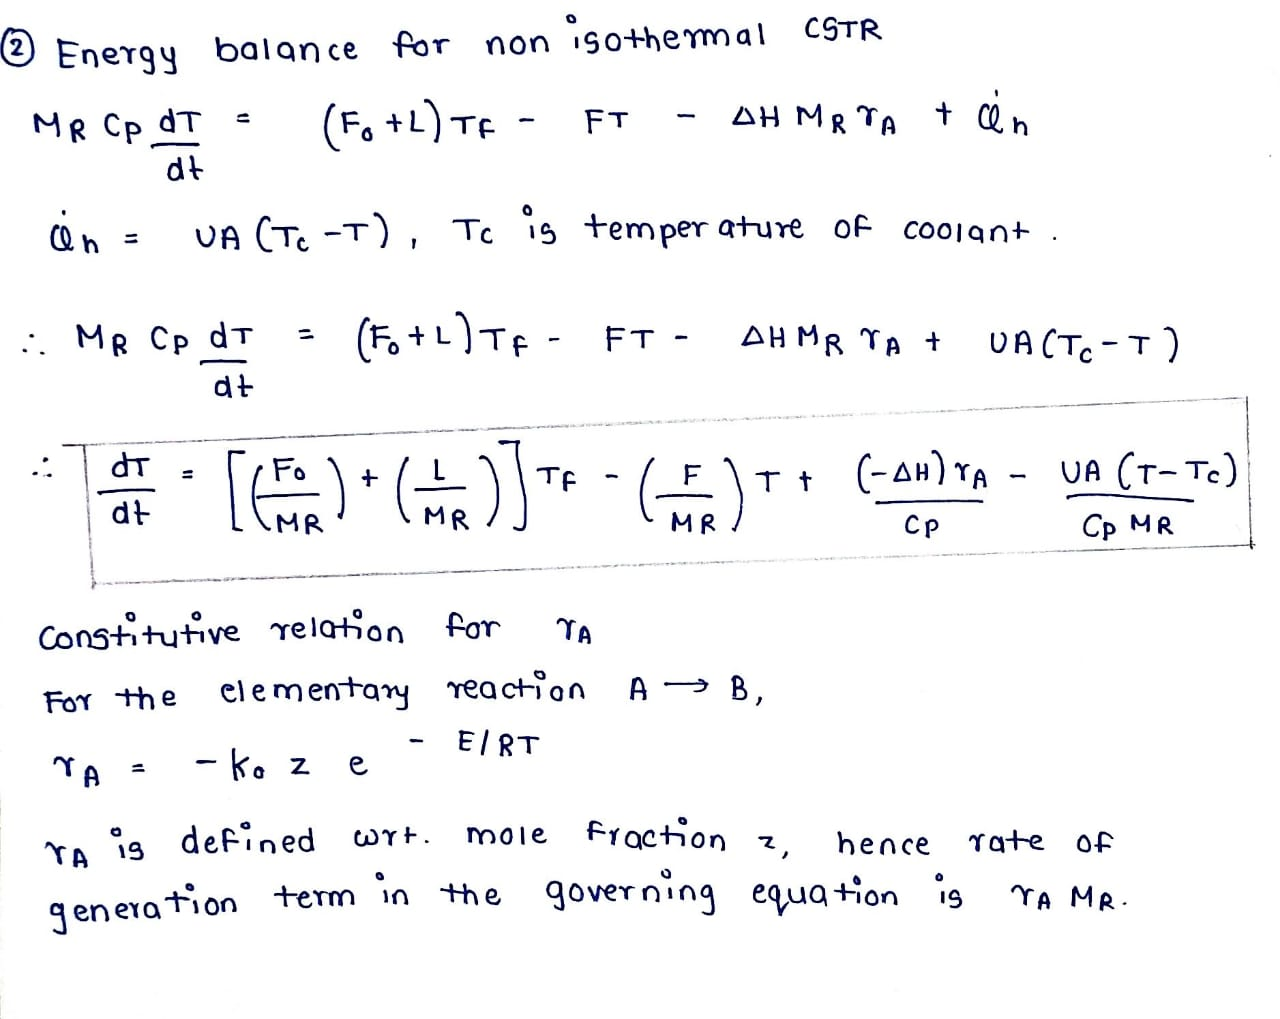 ② Energy balance for non isothermal CSTR
MR Cp dT/dt = (Fo + L) TF - FT - ΔH MR rA + Q̇h
Q̇h = UA (Tc - T), Tc is temperature of coolant.
∴ MR Cp dT/dt = (Fo + L) TF - FT - ΔH MR rA + UA (Tc - T)
∴ dT/dt = [(Fo/MR) + (L/MR)] TF - (F/MR) T + (-ΔH) rA/Cp - UA (T - Tc)/Cp MR
Constitutive relation for rA
For the elementary reaction A → B,
rA = - ko z e^(- E/RT)
rA is defined wrt. mole fraction z, hence rate of
generation term in the governing equation is rA MR.